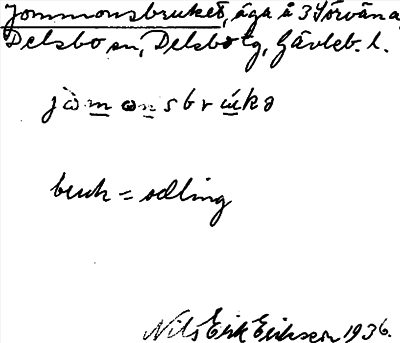 Jommonsbruket, äga å 3 Yörvåna,
Delsbo sn, Delsbo tg, Gävleb. l.
jòmonsbrúkə
bruk = odling
Nils Erik Erikson 1936.